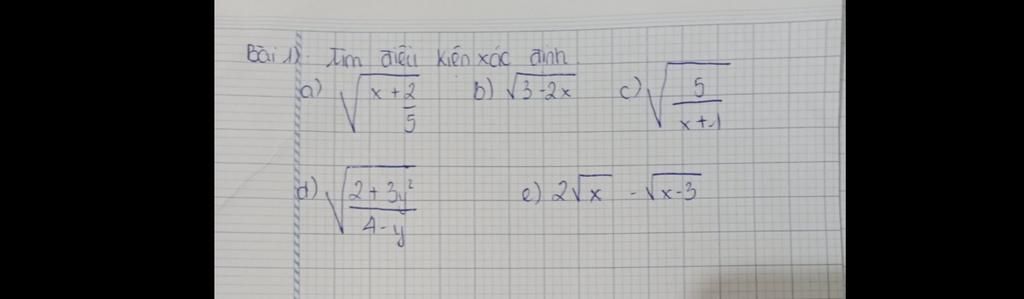 Bài 1: Tìm điều kiện xác định
a) √(x + 2/5) b) √(3-2x) c) √(5/(x+1))
d) √((2+3y²)/(4-y)) e) 2√x - √(x-3)